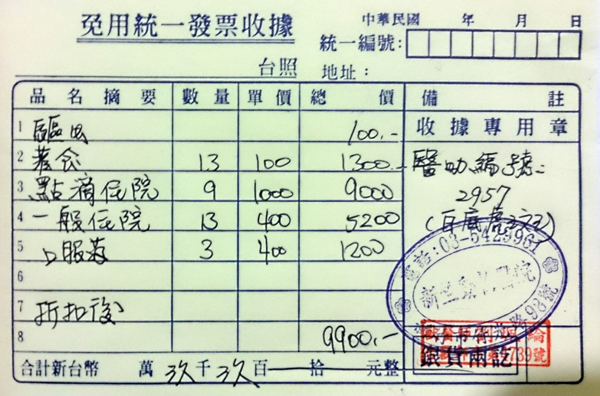 免用統一發票收據
中華民國 年 月 日
統一編號:
台照 地址:
品名摘要 數量 單價 總價 備註
1 驅虫 100.-
收據專用章
2 蒼食 13 100 1300.-
醫助編號:
3 點滴住院 9 1000 9000
2957
4 一般住院 13 400 5200
5 口服药 3 400 1200
電話:03-5429961
6
7 折扣後
路98號
8 9900.-
739號
銀貨兩訖
合計新台幣 萬 玖 千 玖 百 拾 元整